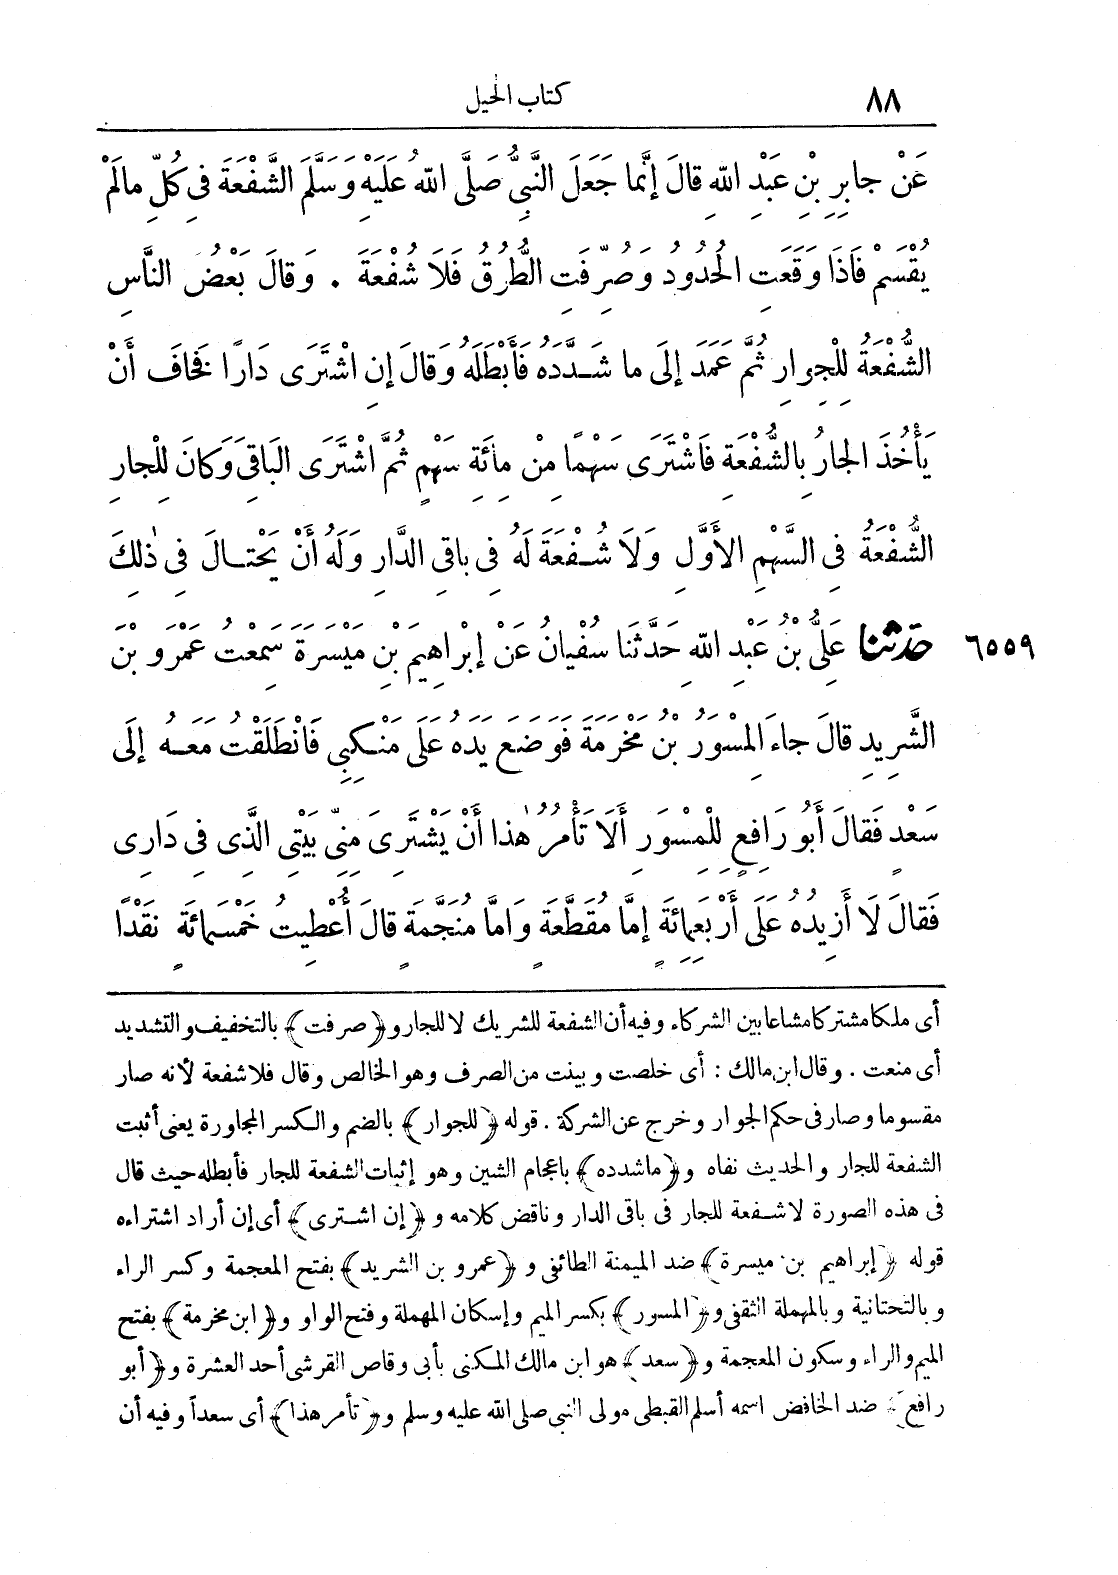 ٨٨ كتاب الحيل
عَنْ جابِرِ بْنِ عَبْدِ اللهِ قالَ إِنَّما جَعَلَ النَّبِيُّ صَلَّى اللهُ عَلَيْهِ وَسَلَّمَ الشُّفْعَةَ فِي كُلِّ مالَمْ
يُقْسَمْ فَاذَا وَقَعَتِ الحُدُودُ وَصُرِّفَتِ الطُّرُقُ فَلَا شُفْعَةَ . وَقالَ بَعْضُ النَّاسِ
الشُّفْعَةُ لِلْجِوارِ ثُمَّ عَمَدَ إِلَى ما شَدَّدَهُ فَأَبْطَلَهُ وَقالَ إِنِ اشْتَرَى دَارًا فَخافَ أَنْ
يَأْخُذَ الجارُ بِالشُّفْعَةِ فَاشْتَرَى سَهْمًا مِنْ مِائَةِ سَهْمٍ ثُمَّ اشْتَرَى البَاقِيَ وَكانَ لِلْجارِ
الشُّفْعَةُ فِي السَّهْمِ الأَوَّلِ وَلَا شُفْعَةَ لَهُ فِي باقِي الدَّارِ وَلَهُ أَنْ يَحْتالَ فِي ذٰلِكَ
٦٥٥٩ حَدَّثَنا عَلِيُّ بْنُ عَبْدِ اللهِ حَدَّثَنَا سُفْيانُ عَنْ إِبْراهِيمَ بْنِ مَيْسَرَةَ سَمِعْتُ عَمْرَو بْنَ
الشَّرِيدِ قالَ جاءَ المِسْوَرُ بْنُ مَخْرَمَةَ فَوَضَعَ يَدَهُ عَلَى مَنْكِبِي فَانْطَلَقْتُ مَعَهُ إِلَى
سَعْدٍ فَقالَ أَبُو رَافِعٍ لِلْمِسْوَرِ أَلَا تَأْمُرُ هٰذا أَنْ يَشْتَرِيَ مِنِّي بَيْتِي الَّذِي فِي دَارِي
فَقالَ لَا أَزِيدُهُ عَلَى أَرْبَعِمِائَةٍ إِمَّا مُقَطَّعَةٍ وَامَّا مُنَجَّمَةٍ قالَ أُعْطِيتُ خَمْسَمِائَةٍ نَقْدًا
أى ملكا مشتركا مشاعا بين الشركاء وفيه أن الشفعة للشريك لا للجار و﴿صرفت﴾ بالتخفيف والتشديد
أى منعت . وقال ابن مالك : أى خلصت وبينت من الصرف وهو الخالص وقال فلا شفعة لأنه صار
مقسوما وصار فى حكم الجوار وخرج عن الشركة . قوله ﴿للجوار﴾ بالضم والكسر المجاورة يعنى أثبت
الشفعة للجار والحديث نفاه و﴿ماشدده﴾ باعجام الشين وهو إثبات الشفعة للجار فأبطله حيث قال
فى هذه الصورة لا شفعة للجار فى باقى الدار وناقض كلامه و﴿إن اشترى﴾ أى إن أراد اشتراءه
قوله ﴿إبراهيم بن ميسرة﴾ ضد الميمنة الطائفى و﴿عمرو بن الشريد﴾ بفتح المعجمة وكسر الراء
وبالتحتانية وبالمهملة الثقفى و﴿المسور﴾ بكسر الميم وإسكان المهملة وفتح الواو و﴿ابن مخرمة﴾ بفتح
الميم والراء وسكون المعجمة و﴿سعد﴾ هو ابن مالك المكنى بأبى وقاص القرشى أحد العشرة و﴿أبو
رافع﴾ ضد الخافض اسمه أسلم القبطى مولى النبى صلى الله عليه وسلم و﴿تأمر هذا﴾ أى سعداً وفيه أن